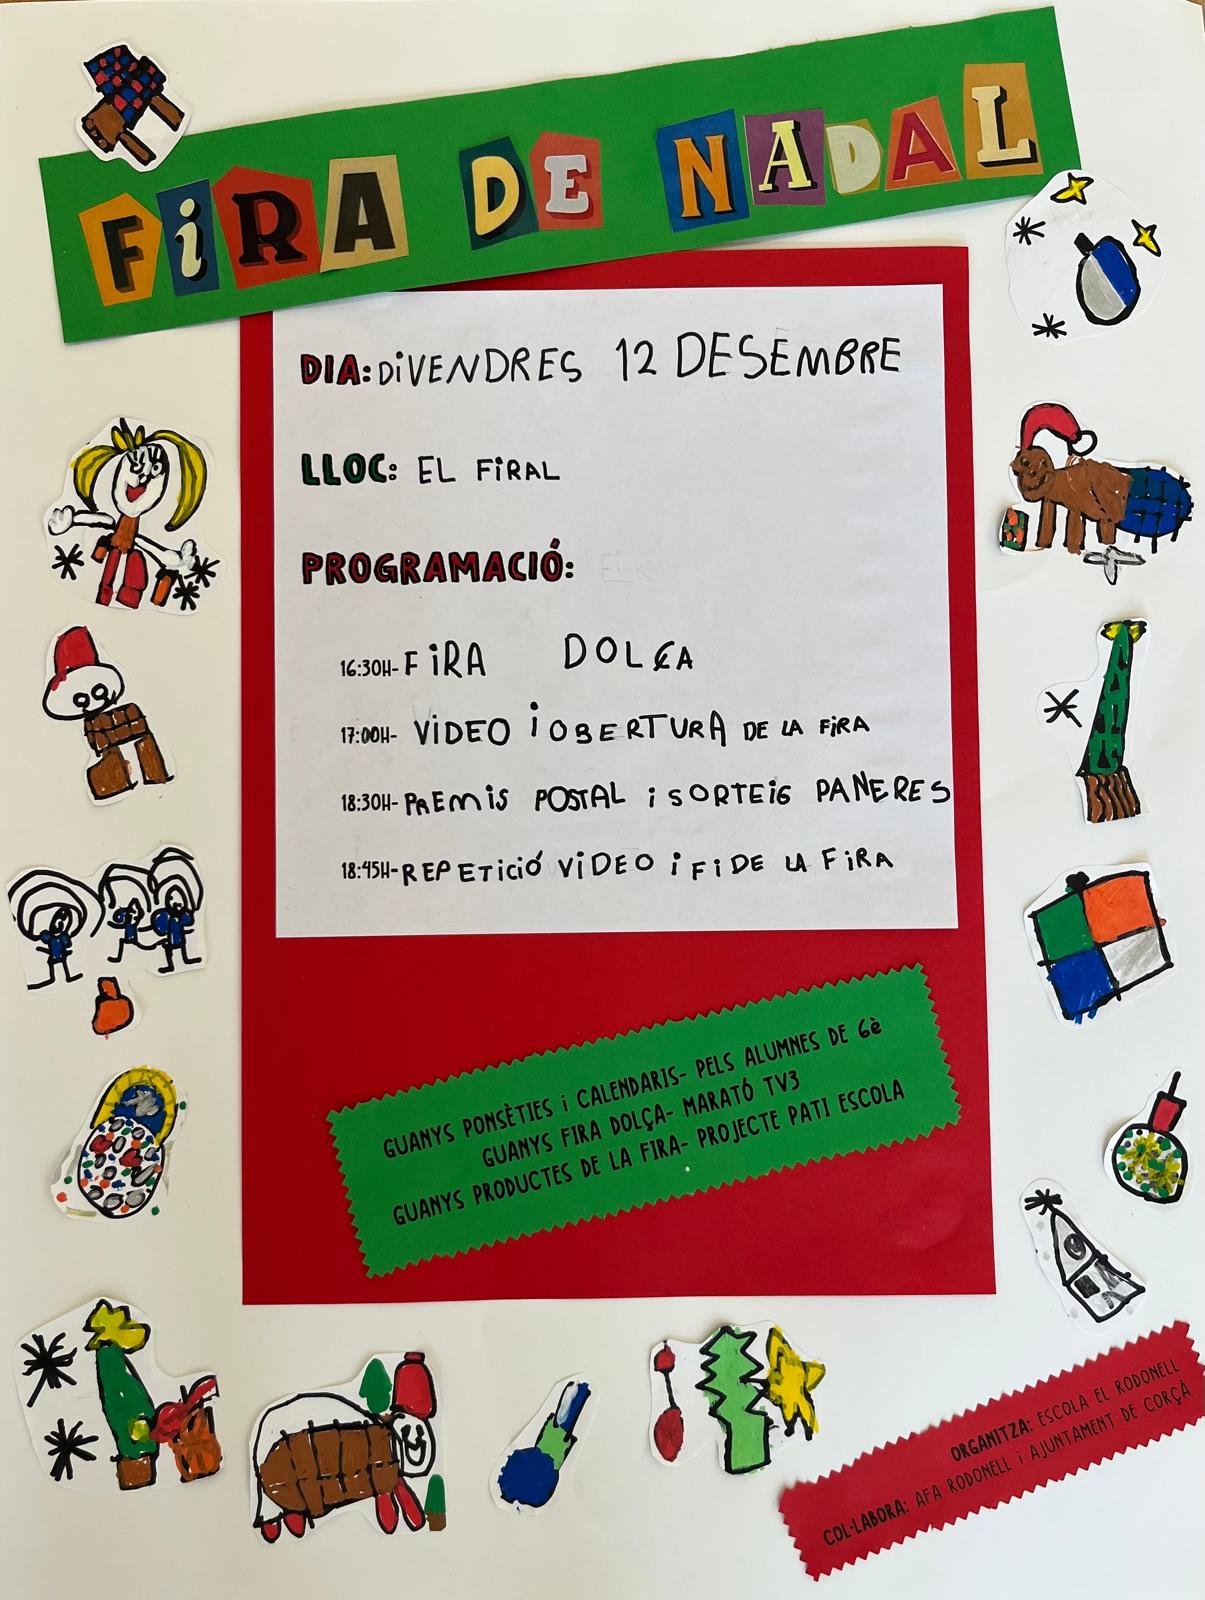 FiRA DE NADAL
DIA: DiVENDRES 12 DESEMBRE
LLOC: EL FiRAL
PROGRAMACIÓ:
16:30H- FiRA DOLÇA
17:00H- ViDEO i OBERTURA DE LA FiRA
18:30H- PREMiS POSTAL i SORTEiG PANERES
18:45H- REPETiCiÓ ViDEO i Fi DE LA FiRA
GUANYS PONSÈTIES i CALENDARIS- PELS ALUMNES DE 6è
GUANYS FIRA DOLÇA- MARATÓ TV3
GUANYS PRODUCTES DE LA FIRA- PROJECTE PATI ESCOLA
ORGANITZA: ESCOLA EL RODONELL
COL·LABORA: AFA RODONELL i AJUNTAMENT DE CORÇÀ